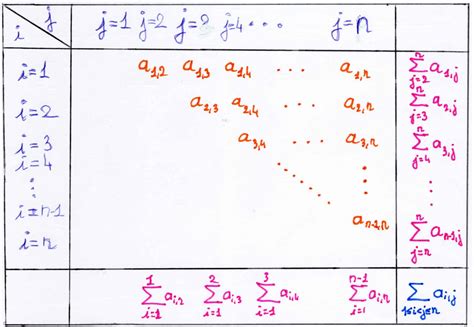 i j j=1 j=2 j=3 j=4 ... j=n
i=1 a_{1,2} a_{1,3} a_{1,4} ... a_{1,n} \sum_{j=2}^{n} a_{1,j}
i=2 a_{2,3} a_{2,4} ... a_{2,n} \sum_{j=3}^{n} a_{2,j}
i=3 a_{3,4} ... a_{3,n} \sum_{j=4}^{n} a_{3,j}
i=4
⋮ ⋱ ⋮ ⋮
i=n-1 a_{n-1,n} \sum_{j=n}^{n} a_{n-1,j}
i=n
\sum_{i=1}^{1} a_{i,2} \sum_{i=1}^{2} a_{i,3} \sum_{i=1}^{3} a_{i,4} \sum_{i=1}^{n-1} a_{i,n} \sum_{1≤i<j≤n} a_{i,j}